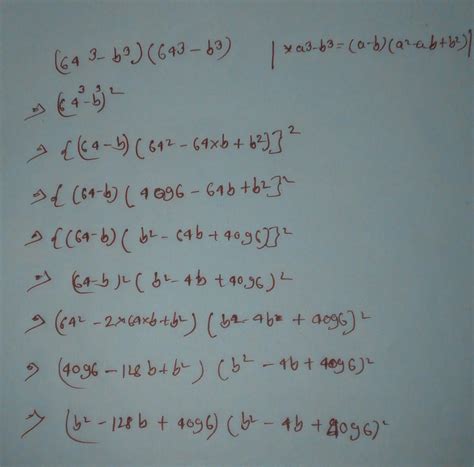 (64³-b³)(64³-b³) | *a³-b³=(a-b)(a²-ab+b²)|
⇒ (64³-b³)²
⇒ {(64-b)(64²-64×b+b²)}²
⇒ {(64-b)(4096-64b+b²}²
⇒ {(64-b)(b²-64b+4096)}²
⇒ (64-b)²(b²-4b+4096)²
⇒ (64²-2×64×b+b²)(b²-4b+4096)²
⇒ (4096-128b+b²)(b²-4b+4096)²
⇒ (b²-128b+4096)(b²-4b+4096)²